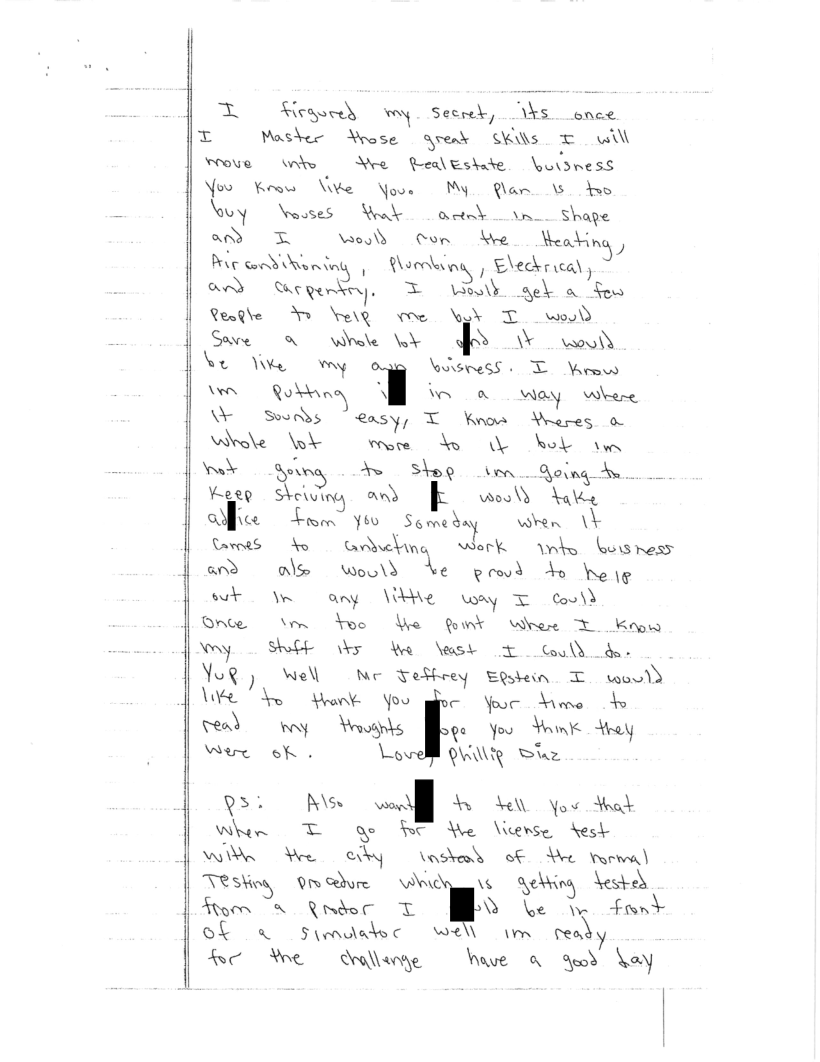 I firgured my secret, its once
I Master those great skills I will
move into the Real Estate buisness
You Know like you. My Plan is too
buy houses that arent in shape
and I would run the Heating,
Air conditioning, Plumbing, Electrical,
and Carpentry. I would get a few
People to help me but I would
Save a whole lot and it would
be like my own buisness. I Know
im Putting in a way where
it sounds easy, I Know theres a
whole lot more to it but im
not going to stop im going to
Keep striving and I would take
advice from you someday when it
comes to conducting work into buisness
and also would be proud to help
out in any little way I could
once im too the point where I Know
my stuff its the least I could do.
Yup, well Mr Jeffrey Epstein I would
like to thank you for your time to
read my thoughts ope you think they
were ok. Love, Phillip Diaz
Ps: Also want to tell you that
when I go for the license test
with the city instead of the normal
Testing procedure which is getting tested
from a Proctor I uld be in front
Of a simulator well im ready
for the challenge have a good day